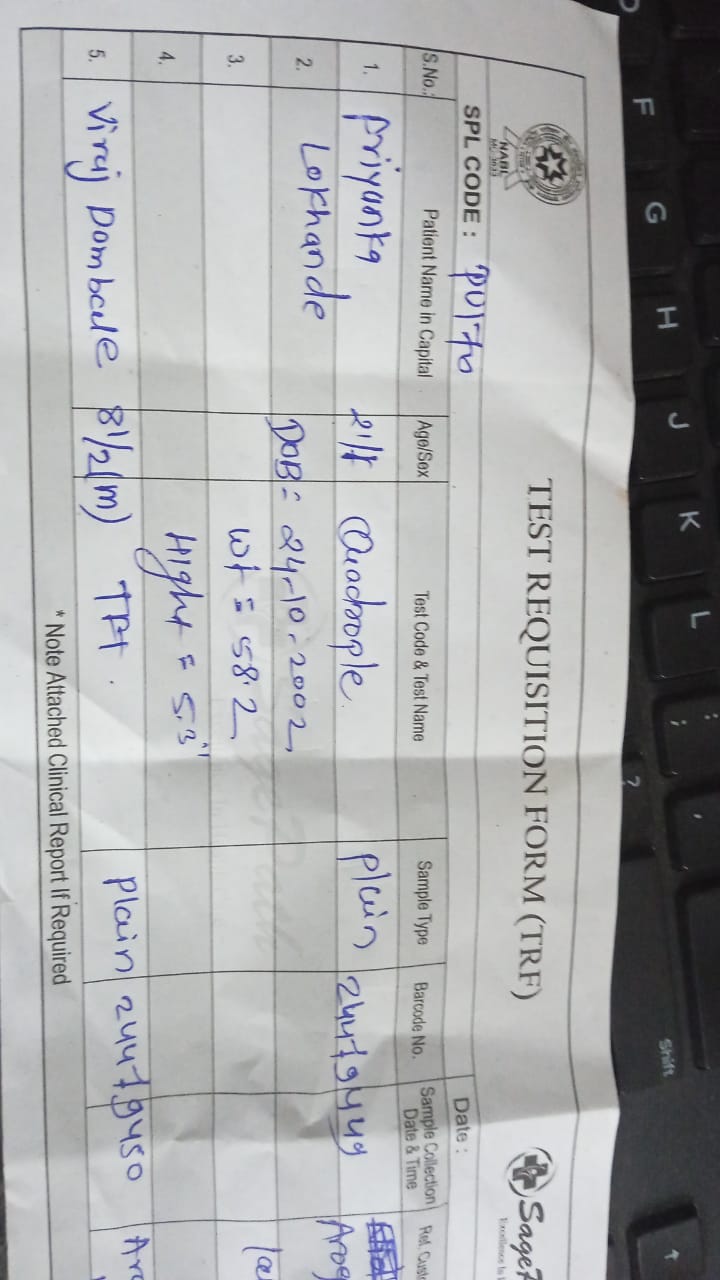 NABL
TEST REQUISITION FORM (TRF)
SPL CODE : PU170
Date :
S.No.: Patient Name in Capital Age/Sex Test Code & Test Name Sample Type Barcode No. Sample Collection Date & Time
1. Priyanka 21/f Quadrople. plain 24479449
2. Lokhande DOB: 24-10-2002
3. Wt = 58.2
4. Hight = 5.3"
5. Viraj Dombale 8 1/2 (m) TFT. plain 24479450
* Note Attached Clinical Report If Required
F G H J K L ; ?
Shift